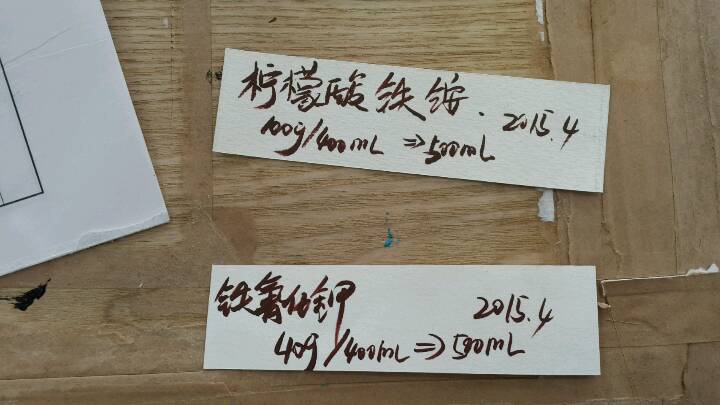 柠檬酸铁铵. 2015.4
100g/400mL ⇒500mL
铁氰化钾 2015.4
40g/400mL⇒500mL